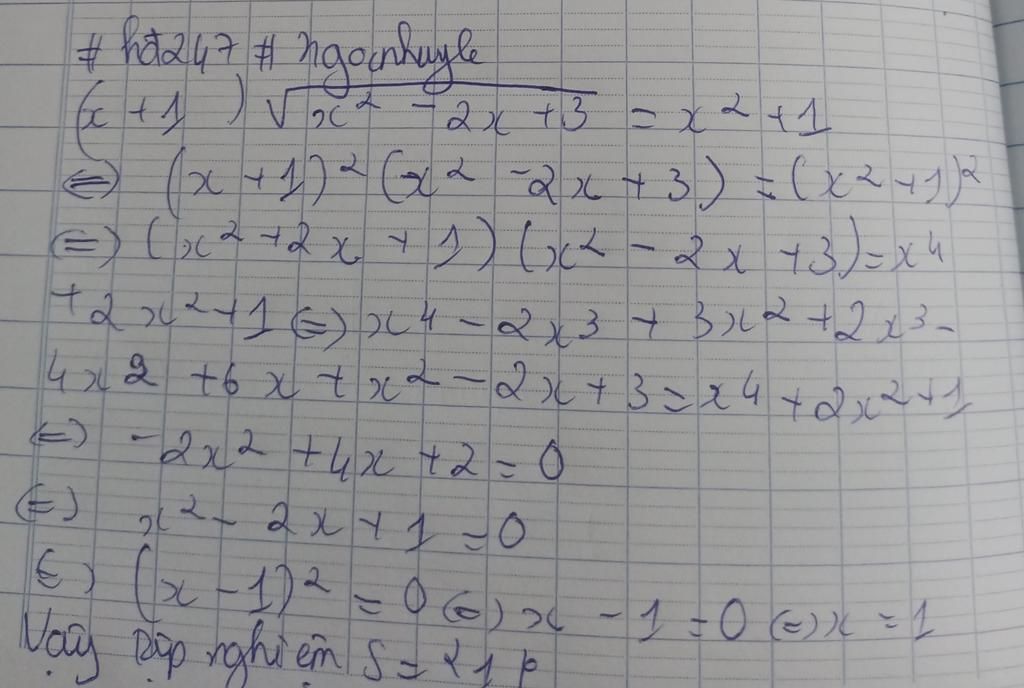 # hđ247 # ngocnhuyle
(x + 1) √(x² - 2x + 3) = x² + 1
⇔ (x + 1)² (x² - 2x + 3) = (x² + 1)²
⇔ (x² + 2x + 1) (x² - 2x + 3) = x⁴
+ 2x² + 1 ⇔ x⁴ - 2x³ + 3x² + 2x³ -
4x² + 6x + x² - 2x + 3 = x⁴ + 2x² + 1
⇔ - 2x² + 4x + 2 = 0
⇔ x² - 2x + 1 = 0
⇔ (x - 1)² = 0 ⇔ x - 1 = 0 ⇔ x = 1
Vậy tập nghiệm S = {1}